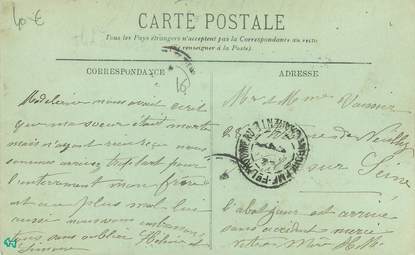 40 €
CARTE POSTALE
Tous les Pays étrangers n'acceptent pas la Correspondance au recto
(se renseigner à la Poste).
CORRESPONDANCE
ADRESSE
18
Madeleine nous avait écrit
que ma soeur était morte
mais n'ayant rien reçu nous
sommes arrivés trop tard pour
l'enterrement mon frère
est au plus mal lui
aussi nous vous embrassons
tous sans oublier Hélène et
Simone
Mr et Mme
de Neuilly
sur
l'abat jour est arrivé
sans accident merci
votre Mère